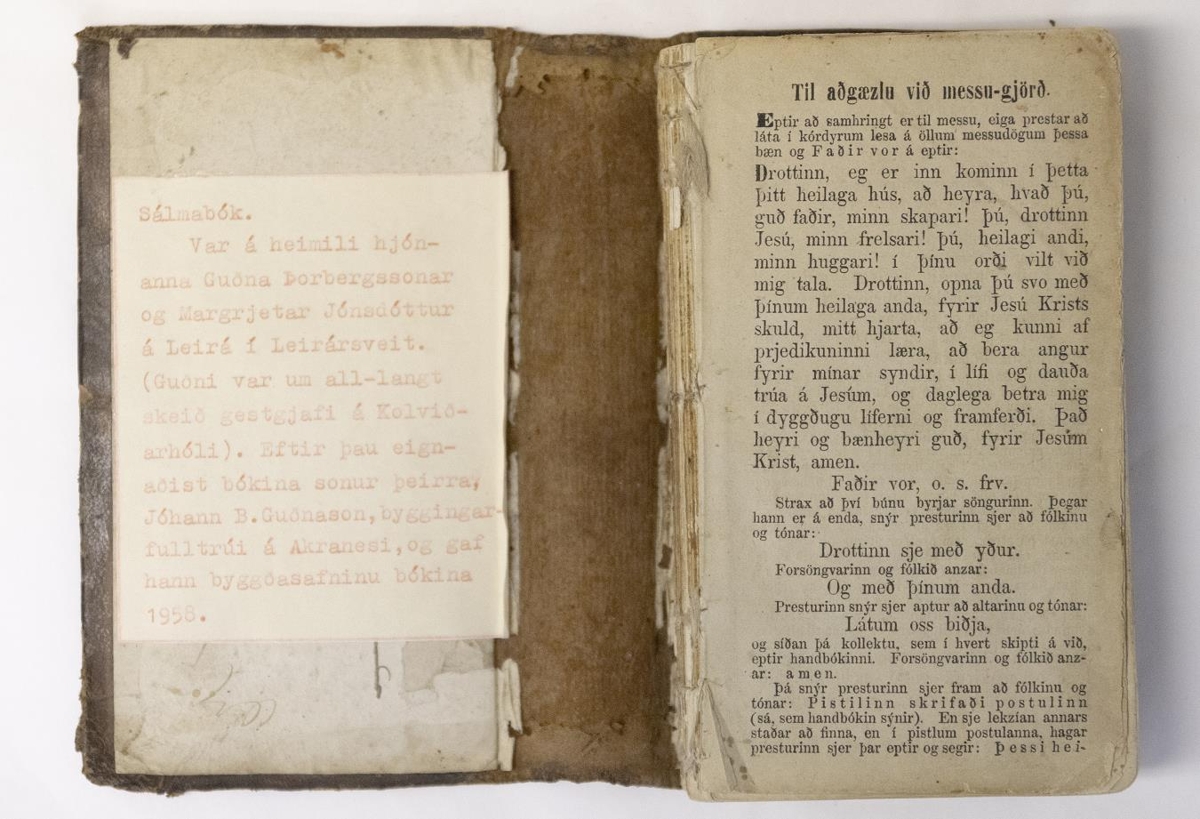 Sálmabók.
Var á heimili hjón-
anna Guðna Þorbergssonar
og Margrjetar Jónsdóttur
á Leirá í Leirársveit.
(Guðni var um all-langt
skeið gestgjafi á Kolvið-
arhóli). Eftir þau eign-
aðist bókina sonur þeirra,
Jóhann B.Guðnason,byggingar-
fulltrúi á Akranesi,og gaf
hann byggðasafninu bókina
1958.
Til aðgæzlu við messu-gjörð.
Eptir að samhringt er til messu, eiga prestar að
láta í kórdyrum lesa á öllum messudögum þessa
bæn og Faðir vor á eptir:
Drottinn, eg er inn kominn í þetta
þitt heilaga hús, að heyra, hvað þú,
guð faðir, minn skapari! þú, drottinn
Jesú, minn frelsari! þú, heilagi andi,
minn huggari! í þínu orði vilt við
mig tala. Drottinn, opna þú svo með
þínum heilaga anda, fyrir Jesú Krists
skuld, mitt hjarta, að eg kunni af
prjedikuninni læra, að bera angur
fyrir mínar syndir, í lífi og dauða
trúa á Jesúm, og daglega betra mig
í dyggðugu líferni og framferði. Það
heyri og bænheyri guð, fyrir Jesúm
Krist, amen.
Faðir vor, o. s. frv.
Strax að því búnu byrjar söngurinn. Þegar
hann er á enda, snýr presturinn sjer að fólkinu
og tónar:
Drottinn sje með yður.
Forsöngvarinn og fólkið anzar:
Og með þínum anda.
Presturinn snýr sjer aptur að altarinu og tónar:
Látum oss biðja,
og síðan þá kollektu, sem í hvert skipti á við,
eptir handbókinni. Forsöngvarinn og fólkið anz-
ar: amen.
Þá snýr presturinn sjer fram að fólkinu og
tónar: Pistilinn skrifaði postulinn
(sá, sem handbókin sýnir). En sje lekzían annars
staðar að finna, en í pistlum postulanna, hagar
presturinn sjer þar eptir og segir: Þessi hei-